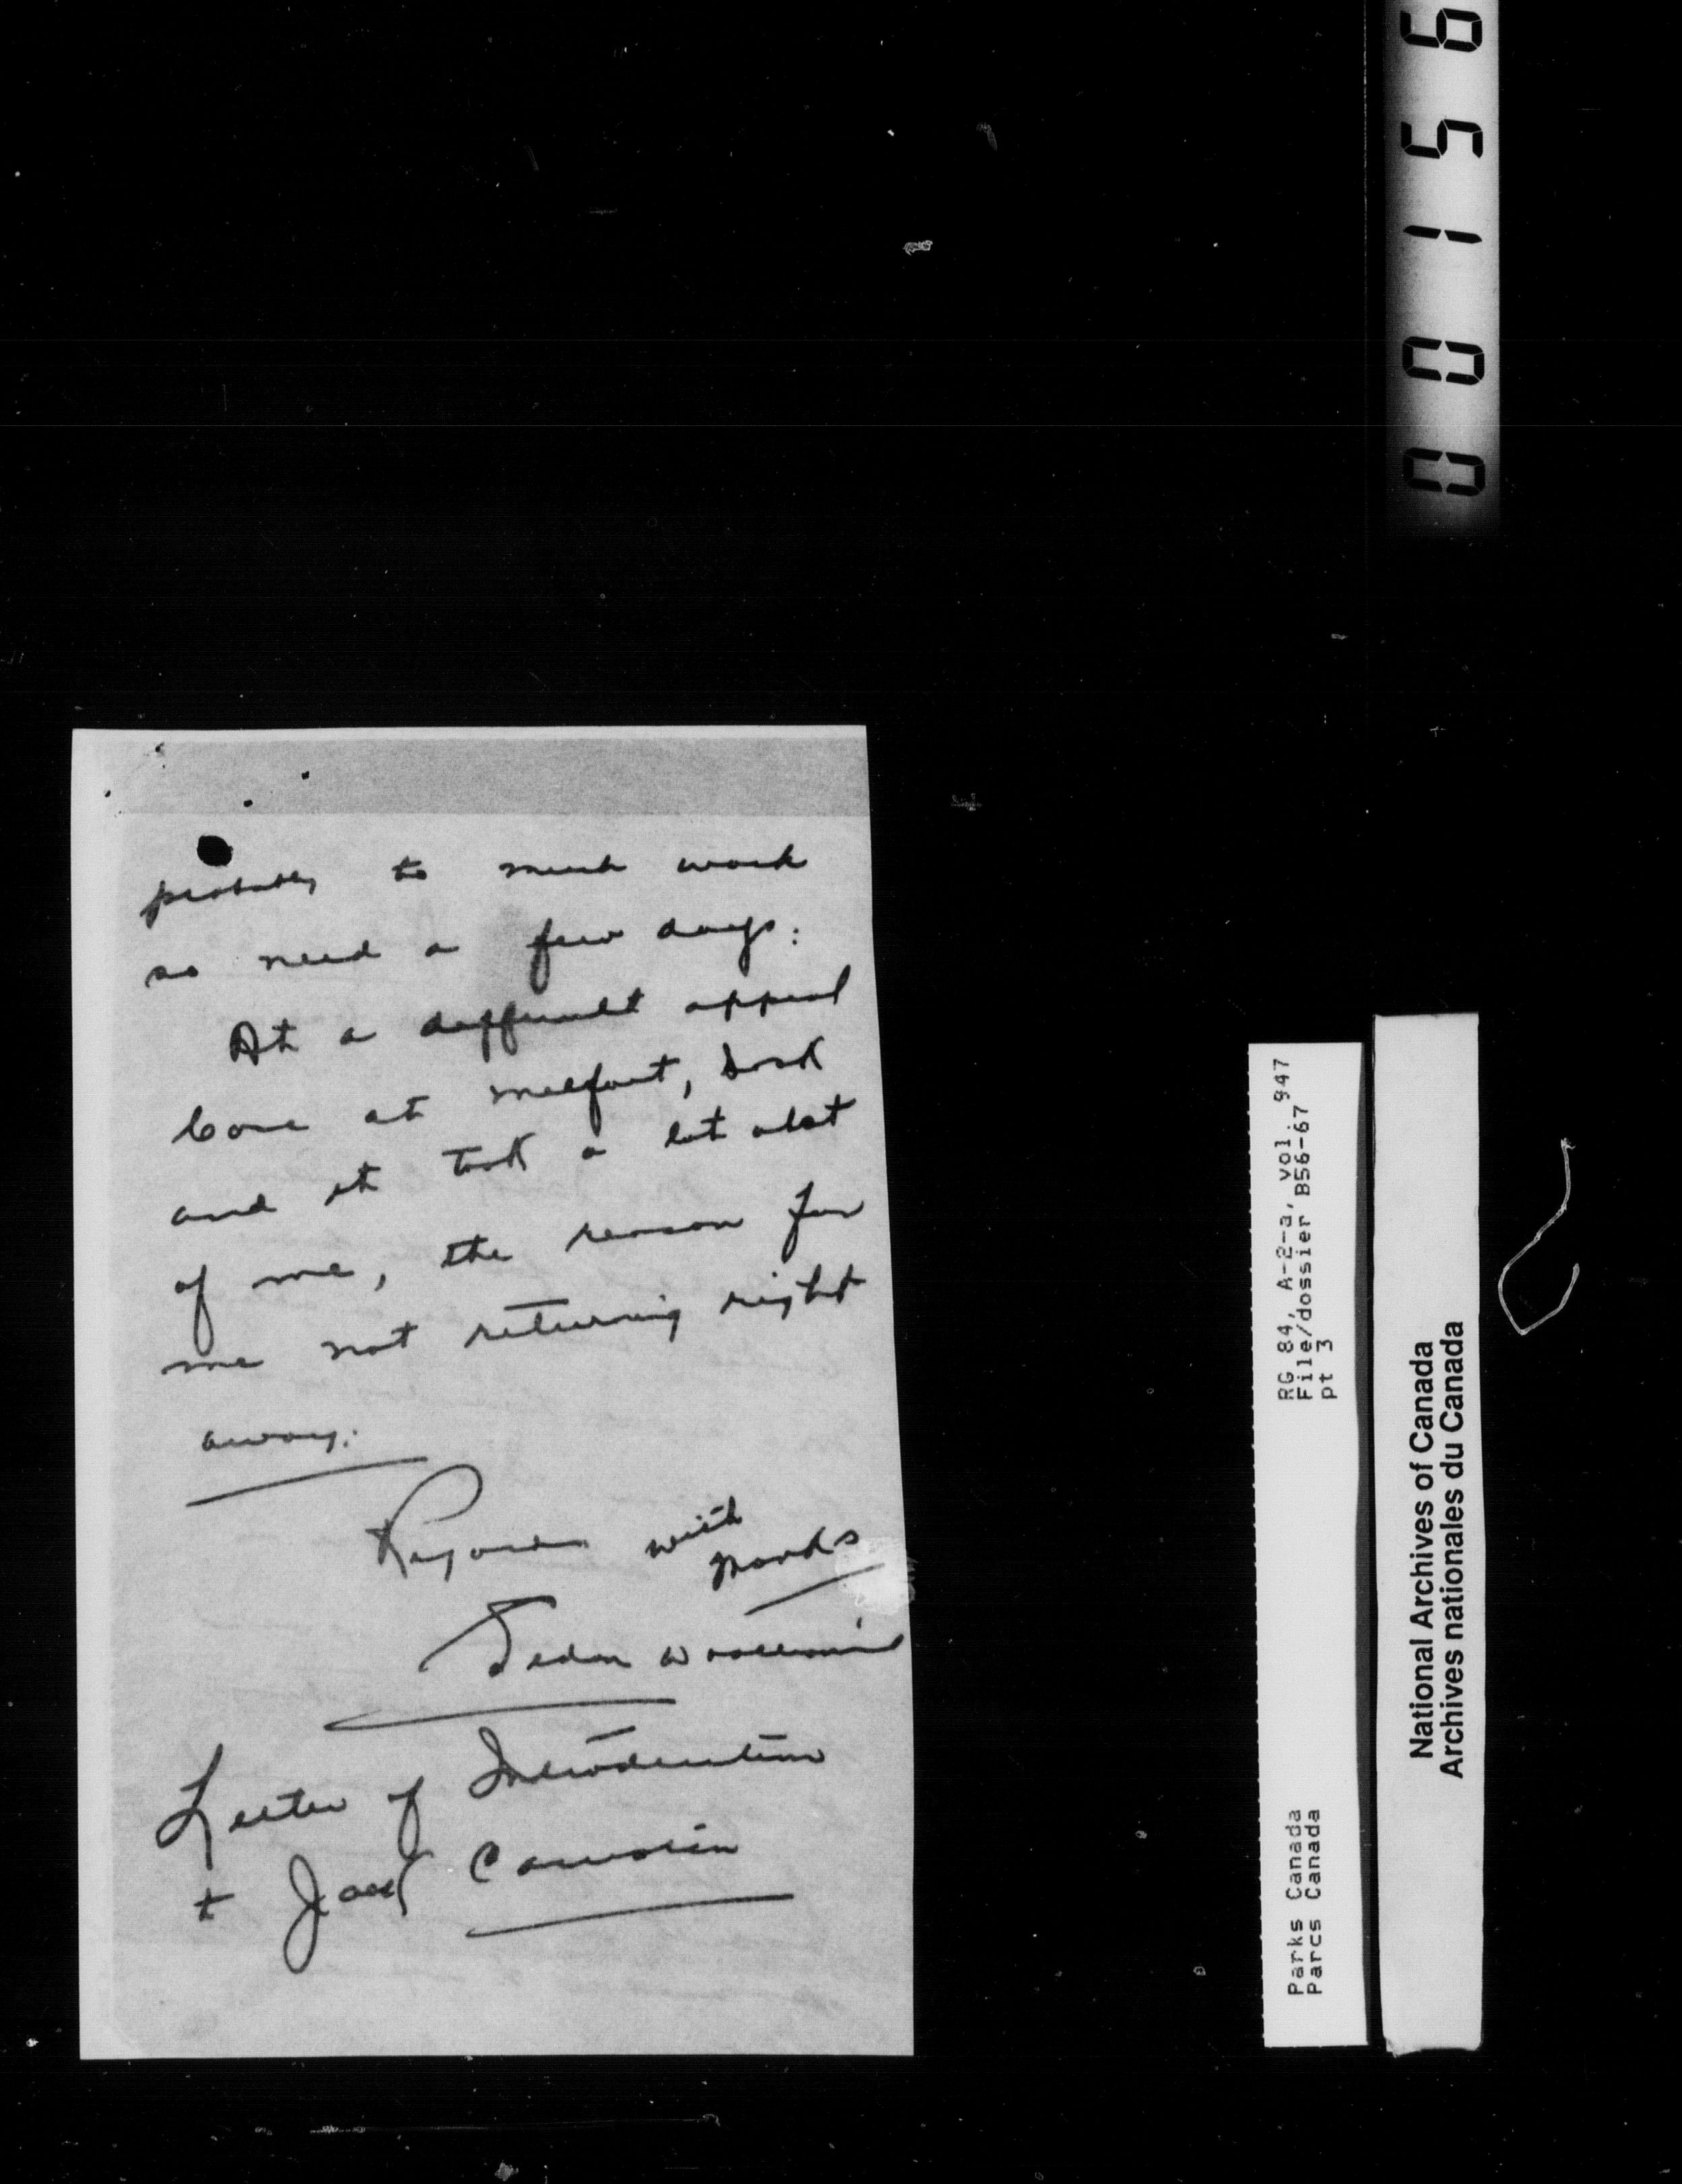 probably to much work
so need a few days.
At a difficult appeal
Case at Melfort, Sask
and it took a lot out
of me, the reason for
me not returning right
away.
with
Letter of Introduction
t Jack
00156
RG 84, A-2-a, vol. 947
File/dossier B56-67
pt 3
Parks Canada
Parcs Canada
National Archives of Canada
Archives nationales du Canada